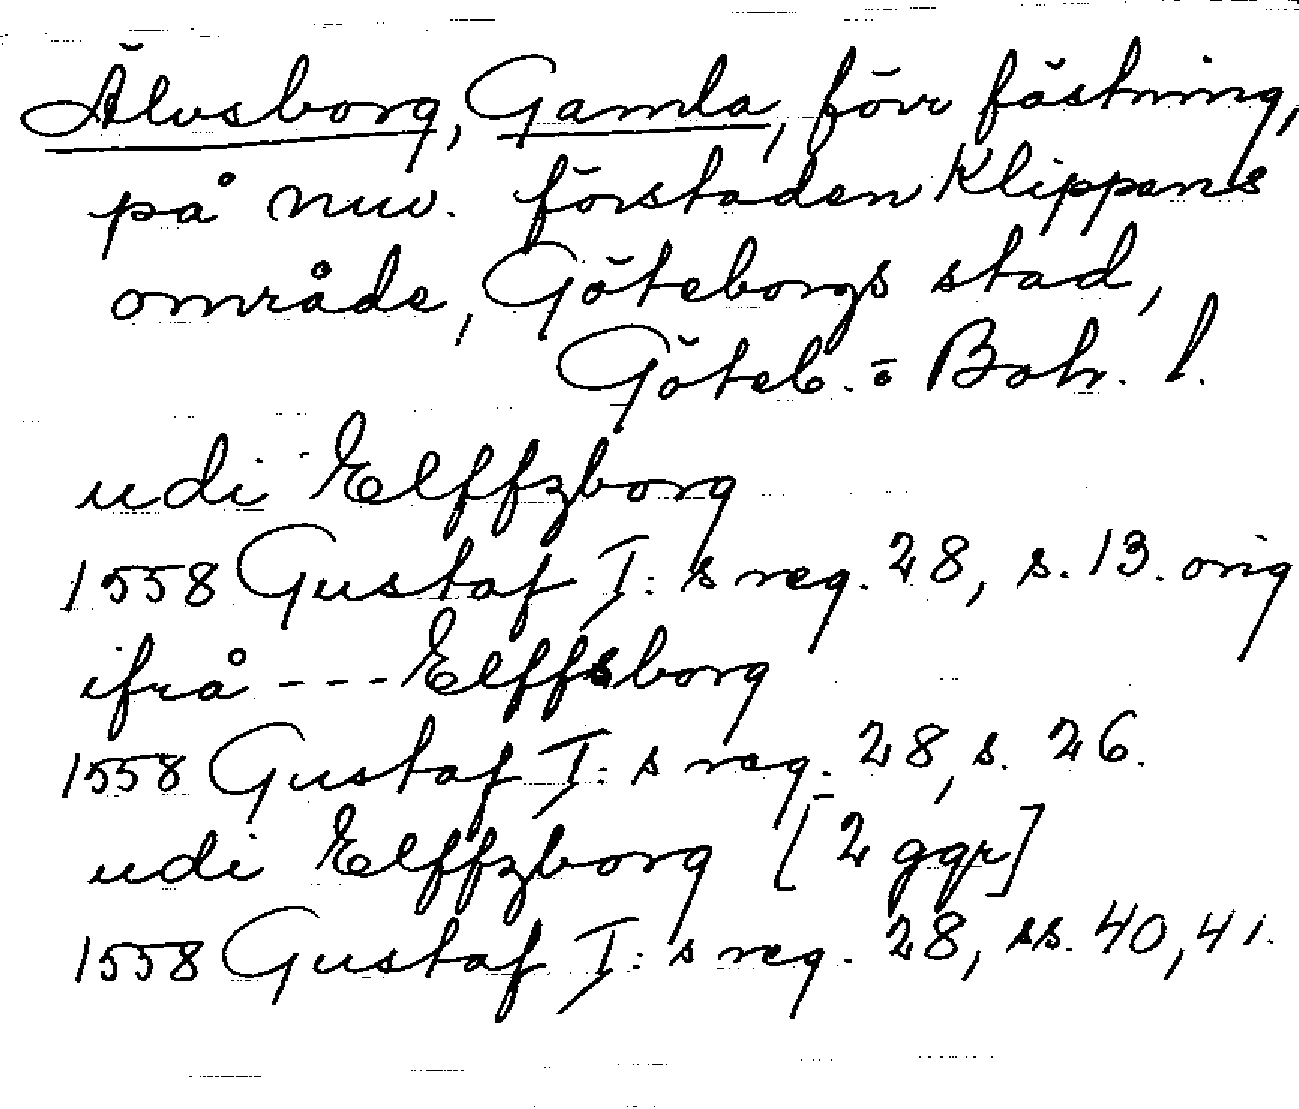 Älvsborg, Gamla, förr fästning,
på nuv. förstaden Klippans
område, Göteborgs stad,
Göteb. o Boh. l.
udi Elffzborg
1558 Gustaf I:s reg. 28, s. 13. orig
ifrå --- Elffsborg
1558 Gustaf I:s reg. 28, s. 26.
udi Elffzborg [2 ggr]
1558 Gustaf I:s reg. 28, ss. 40, 41.